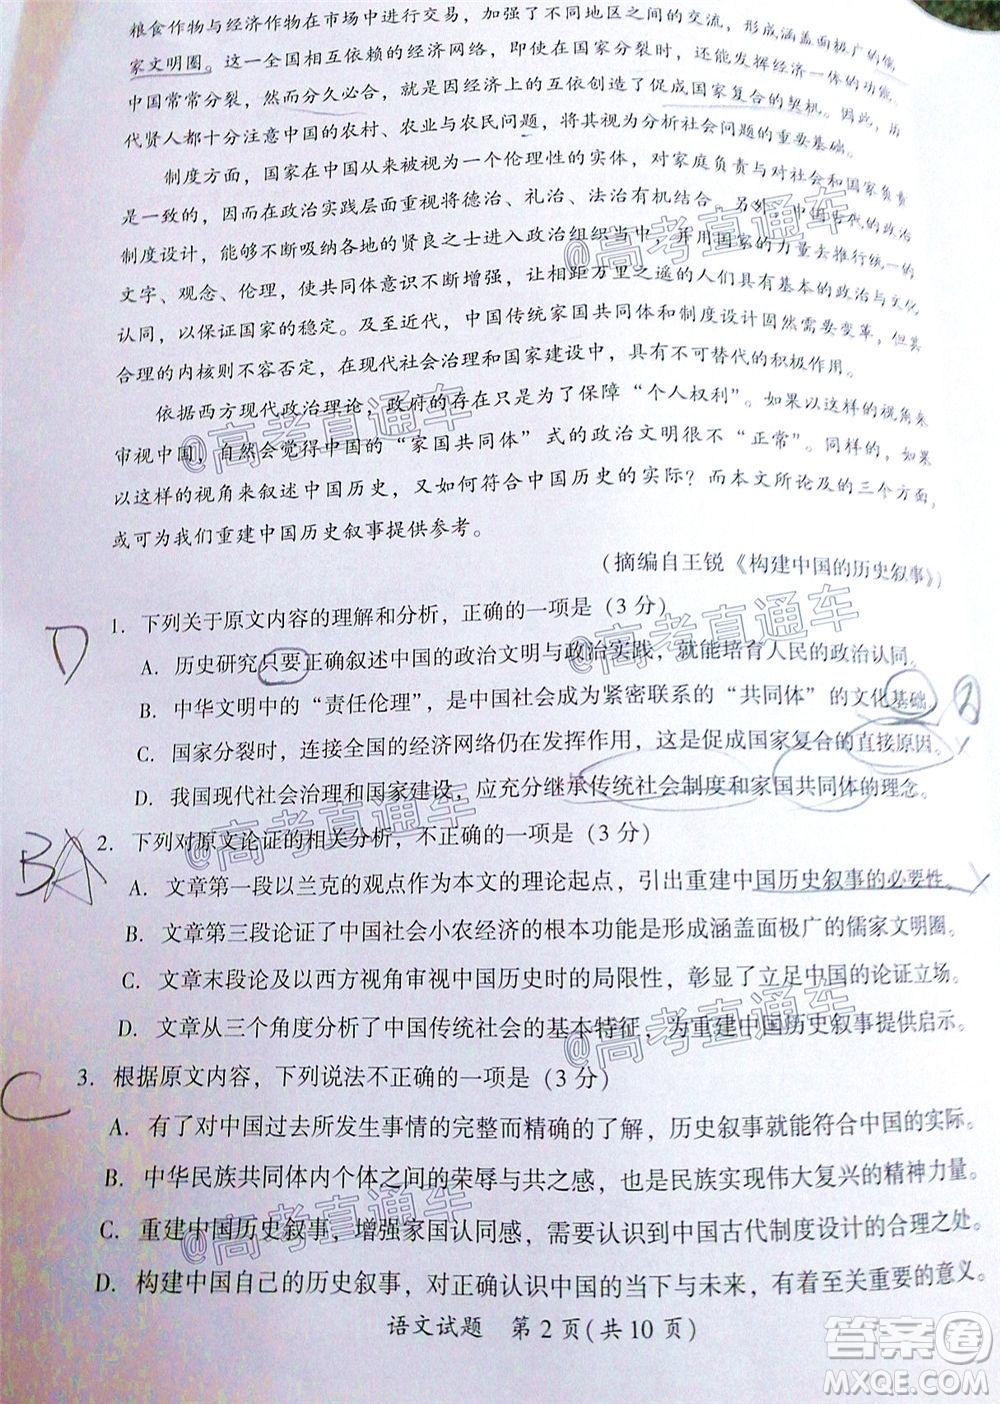 粮食作物与经济作物在市场中进行交易，加强了不同地区之间的交流，形成涵盖面极广的儒
家文明圈。这一全国相互依赖的经济网络，即使在国家分裂时，还能发挥经济一体的功能。
中国常常分裂，然而分久必合，就是因经济上的互依创造了促成国家复合的契机。因此，历
代贤人都十分注意中国的农村、农业与农民问题，将其视为分析社会问题的重要基础。
制度方面，国家在中国从来被视为一个伦理性的实体，对家庭负责与对社会和国家负责
是一致的，因而在政治实践层面重视将德治、礼治、法治有机结合。另外，中国古代的政治
制度设计，能够不断吸纳各地的贤良之士进入政治组织当中，并用国家的力量去推行统一的
文字、观念、伦理，使共同体意识不断增强，让相距万里之遥的人们具有基本的政治与文化
认同，以保证国家的稳定。及至近代，中国传统家国共同体和制度设计固然需要变革，但其
合理的内核则不容否定，在现代社会治理和国家建设中，具有不可替代的积极作用。
依据西方现代政治理论，政府的存在只是为了保障“个人权利”。如果以这样的视角来
审视中国，自然会觉得中国的“家国共同体”式的政治文明很不“正常”。同样的，如果
以这样的视角来叙述中国历史，又如何符合中国历史的实际？而本文所论及的三个方面，
或可为我们重建中国历史叙事提供参考。
（摘编自王锐《构建中国的历史叙事》）
1. 下列关于原文内容的理解和分析，正确的一项是（3 分）
D
A. 历史研究只要正确叙述中国的政治文明与政治实践，就能培育人民的政治认同。
B. 中华文明中的“责任伦理”，是中国社会成为紧密联系的“共同体”的文化基础。
C. 国家分裂时，连接全国的经济网络仍在发挥作用，这是促成国家复合的直接原因。
D. 我国现代社会治理和国家建设，应充分继承传统社会制度和家国共同体的理念。
2. 下列对原文论证的相关分析，不正确的一项是（3 分）
B
A. 文章第一段以兰克的观点作为本文的理论起点，引出重建中国历史叙事的必要性。
B. 文章第三段论证了中国社会小农经济的根本功能是形成涵盖面极广的儒家文明圈。
C. 文章末段论及以西方视角审视中国历史时的局限性，彰显了立足中国的论证立场。
D. 文章从三个角度分析了中国传统社会的基本特征，为重建中国历史叙事提供启示。
3. 根据原文内容，下列说法不正确的一项是（3 分）
C
A. 有了对中国过去所发生事情的完整而精确的了解，历史叙事就能符合中国的实际。
B. 中华民族共同体内个体之间的荣辱与共之感，也是民族实现伟大复兴的精神力量。
C. 重建中国历史叙事，增强家国认同感，需要认识到中国古代制度设计的合理之处。
D. 构建中国自己的历史叙事，对正确认识中国的当下与未来，有着至关重要的意义。
语文试题 第 2 页（共 10 页）
@高考直通车
@高考直通车
@高考直通车
@高考直通车
@高考直通车
@高考直通车
答案卷
MXQE.COM